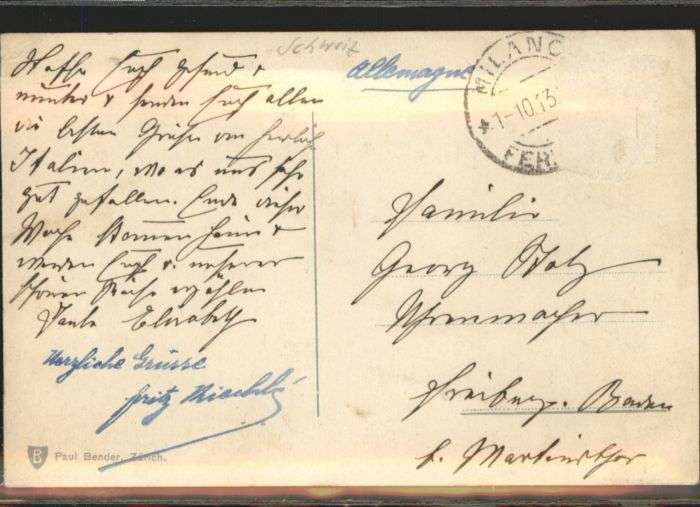 Schweiz
Allemagne
MILANO
1-10.13
FER.
Hoffe Euch gesund &
munter & senden Euch allen
die besten Grüße von herrlich
Italien, wo es uns sehr
gut gefallen. Ende dieser
Woche kommen heim &
werden Euch v. unserer
schönen Reise erzählen
Tante Elisabeth
Herzliche Grüsse
Fritz
Familie
Georg Stolz
Uhrenmacher
Freiburg. Baden
b. Martinsthor
PB
Paul Bender, Zürich.